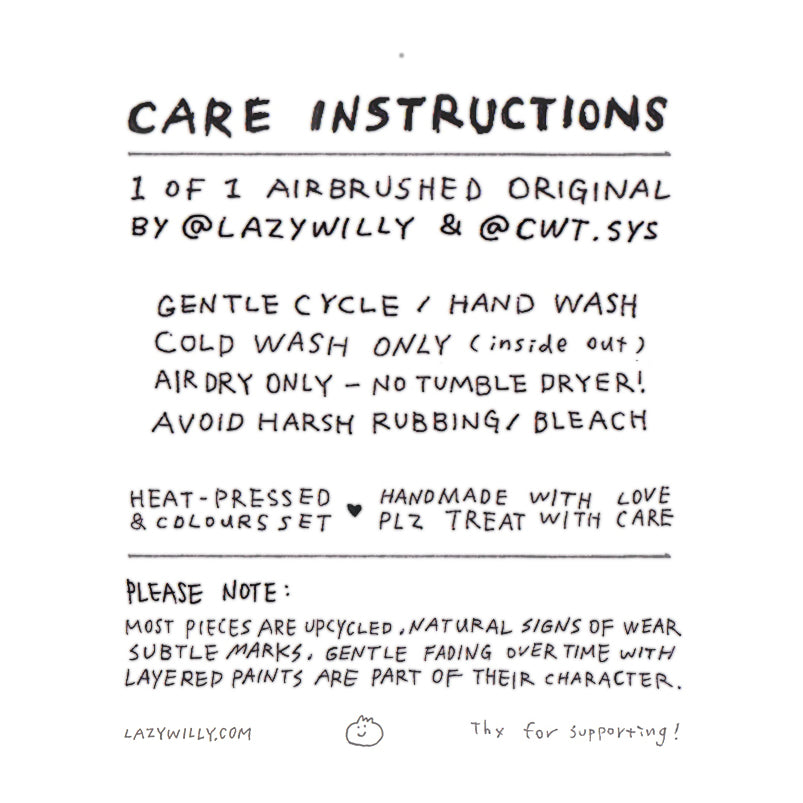 CARE INSTRUCTIONS
1 OF 1 AIRBRUSHED ORIGINAL
BY @LAZYWILLY & @CWT.SYS
GENTLE CYCLE / HAND WASH
COLD WASH ONLY (inside out)
AIR DRY ONLY – NO TUMBLE DRYER!
AVOID HARSH RUBBING/ BLEACH
HEAT-PRESSED ♥ HANDMADE WITH LOVE
& COLOURS SET PLZ TREAT WITH CARE
PLEASE NOTE:
MOST PIECES ARE UPCYCLED, NATURAL SIGNS OF WEAR
SUBTLE MARKS, GENTLE FADING OVER TIME WITH
LAYERED PAINTS ARE PART OF THEIR CHARACTER.
LAZYWILLY.COM Thx for supporting!